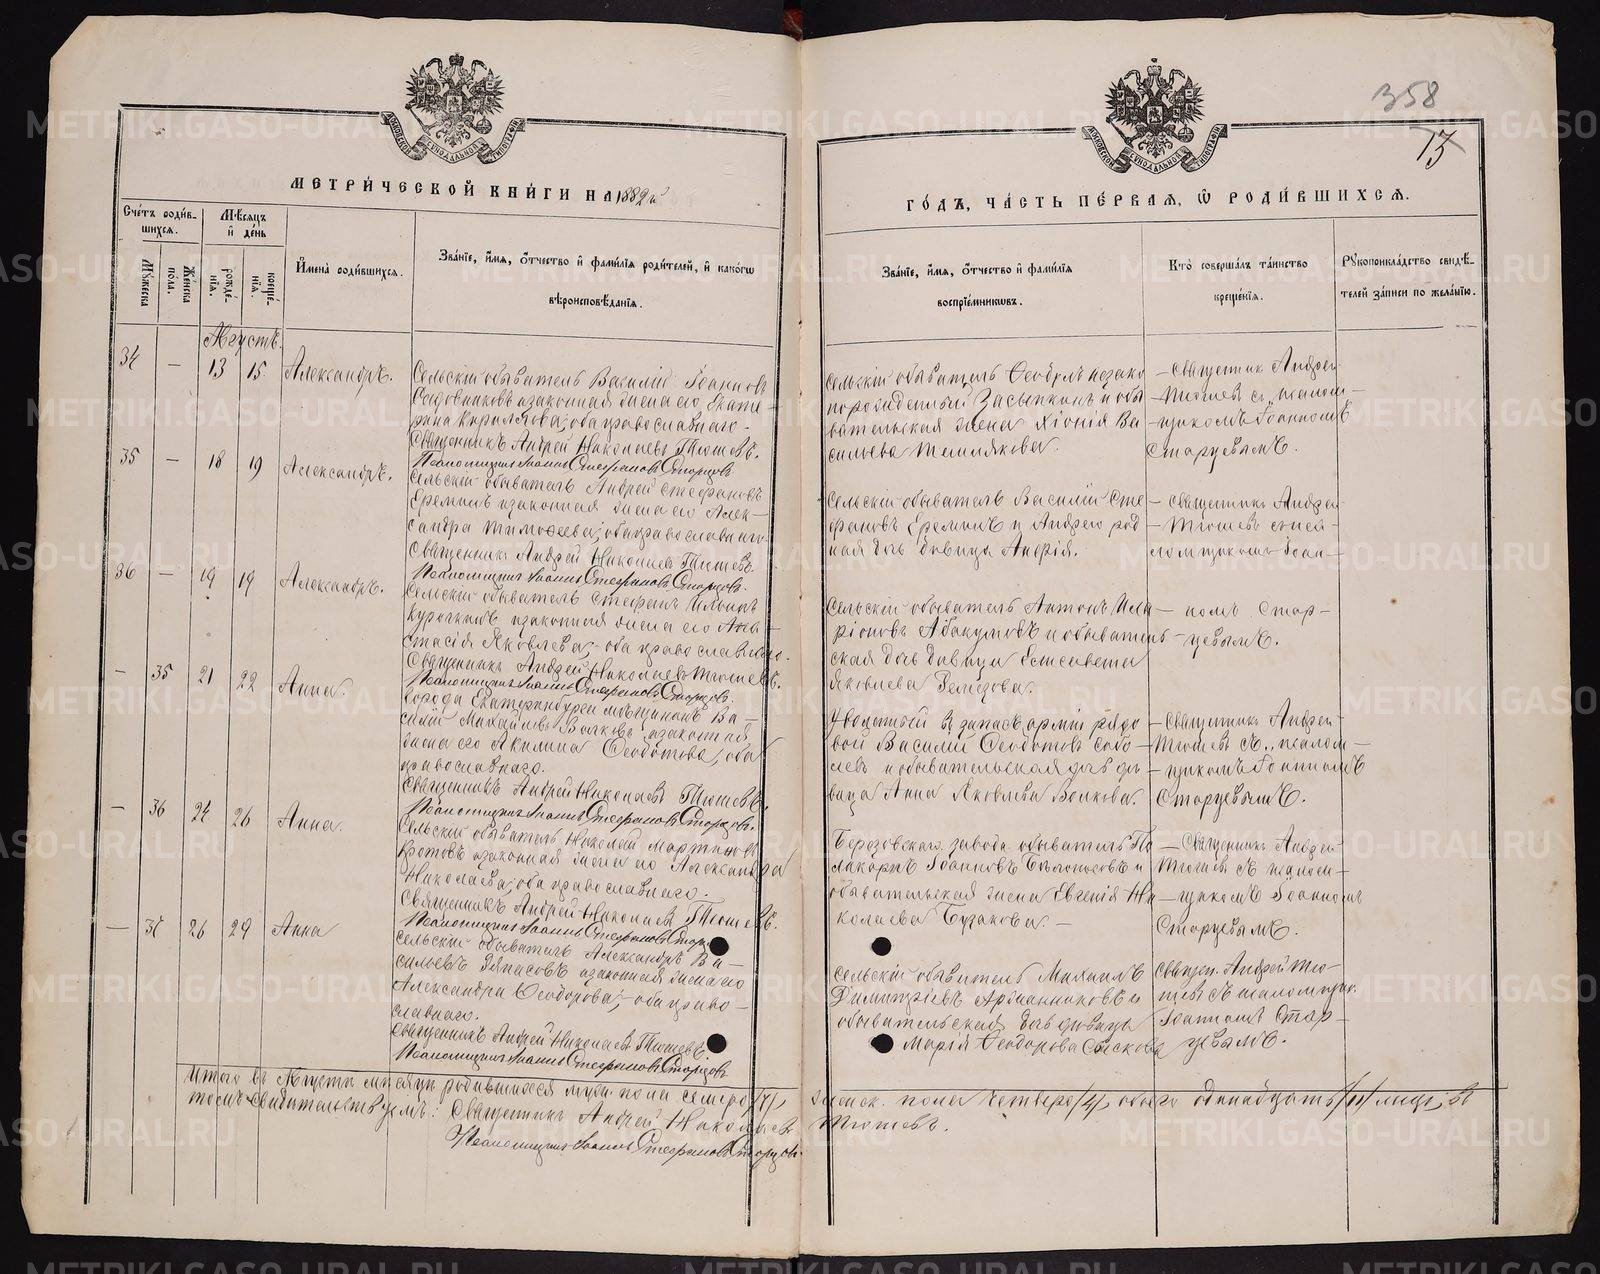 358
13
МЕТРИ́ЧЕСКОЙ КНИ́ГИ НА 1882й
ГО́ДЪ, ЧА́СТЬ ПЕ́РВАЯ, Ѡ РОДИ́ВШИХСЯ.
Сче́тъ роди́в-
шихся.
Мꙋжеска
Же́нска по́ла.
Мѣ́сяцъ
и҆ де́нь
рожде́-
нїя.
креще́-
нїя.
И҆мена̀ роди́вшихся.
Зва́нїе, и҆́мя, ѻ҆́тчество и҆ фами́лїя роди́телей, и҆ како́гѡ
вѣроисповѣ́данїя.
Зва́нїе, и҆́мя, ѻ҆́тчество и҆ фами́лїя
воспрїе́мниковъ.
Кто̀ соверша́лъ та́инство
креще́нїя.
Рꙋкоприкла́дство свидѣ́-
телей за́писи по жела́нїю.
Августъ.
34 — 13 15 Александръ.
Сельскій обыватель Василій Іоанновъ
и законная жена его Екате-
рина Кириллова; оба православнаго.
Священникъ Андрей Николаевъ Тюшевъ.
Псаломщикъ Іоаннъ Стефановъ Старцовъ
Сельскій обыватель Ѳеодоръ незако
норожденный Засыпкинъ и обы
вательская жена Хіонія Ва
сильева
— Священник Андрей
— Тюшевъ съ псалом —
— щикомъ Іоанномъ
Старцевымъ.
35 — 18 19 Александръ.
Сельскій обыватель Андрей Стефановъ
Ереминъ и законная жена его Алек-
сандра Тимофеева; оба православнаго
Священникъ Андрей Николаевъ Тюшевъ.
Псаломщикъ Іоаннъ Стефановъ Старцовъ.
Сельскій обыватель Василій Сте
фановъ Ереминъ и Андрея род
ная дочь девица Марія.
— Священникъ Андрей
— Тюшевъ с пса-
ломщикомъ Іоан—
— номъ Стар—
— цевымъ.
36 — 19 19 Александръ.
Сельскій обыватель Стефанъ Ильинъ
Курочкинъ и законная жена его Ана-
стасія Яковлева; оба православнаго.
Священникъ Андрей Николаевъ Тюшевъ.
Псаломщикъ Іоаннъ Стефановъ Старцовъ.
Сельскій обыватель Антонъ Ила
ріоновъ Абакумовъ и обыватель
ская дочь девица Елисавета
Яковлева
— 35 21 22 Анна.
Города Екатеринбурга мещанинъ Ва-
силій Михайловъ Волковъ и законная
жена его Акилина Ѳеодотова; оба
православнаго.
Священникъ Андрей Николаевъ Тюшевъ.
Псаломщикъ Іоаннъ Стефановъ Старцовъ.
Уволенный въ запасъ арміи рядо
вой Василій Ѳеодотовъ Собо-
левъ и обывательская дочь де-
вица Анна Яковлева Волкова.
— Священникъ Андрей
— Тюшевъ съ псалом —
— щикомъ Іоанномъ
Старцевымъ.
— 36 24 26 Анна.
Сельскій обыватель Николай Мартиновъ
Кротовъ и законная жена его Александра
Николаева; оба православнаго.
Священникъ Андрей Николаевъ Тюшевъ.
Псаломщикъ Іоаннъ Стефановъ Стар
Березовскаго завода обыватель По
ликарпъ Іоанновъ Белоносовъ и
обывательская жена Евгенія Ни
колаева Бузакова. —
— Священникъ Андрей
Тюшевъ съ псалом-
— щикомъ Іоанномъ
Старцевымъ.
— 37 26 29 Анна
Сельскій обыватель Александръ Ва-
сильевъ и законная жена его
Александра Ѳеодорова; оба право-
славнаго.
Священникъ Андрей Николаевъ Тюшевъ.
Псаломщикъ Іоаннъ Стефановъ Старцовъ
Сельскій обыватель Михаилъ
Димитріевъ и
обывательская дочь девица
Марія Ѳеодорова Сыскова
Священ. Андрей Тю-
шевъ съ псаломщик.
Іоанномъ Стар-
цевымъ.
Итого въ Августѣ мѣсяцѣ родившихся муж. пола семеро /7/,
женск. пола четверо /4/, обоего одинадцать /11/ лицъ, въ
томъ свидетельствуемъ: Священникъ Андрей Николаевъ
Тюшевъ.
Псаломщикъ Іоаннъ Стефановъ Старцовъ.